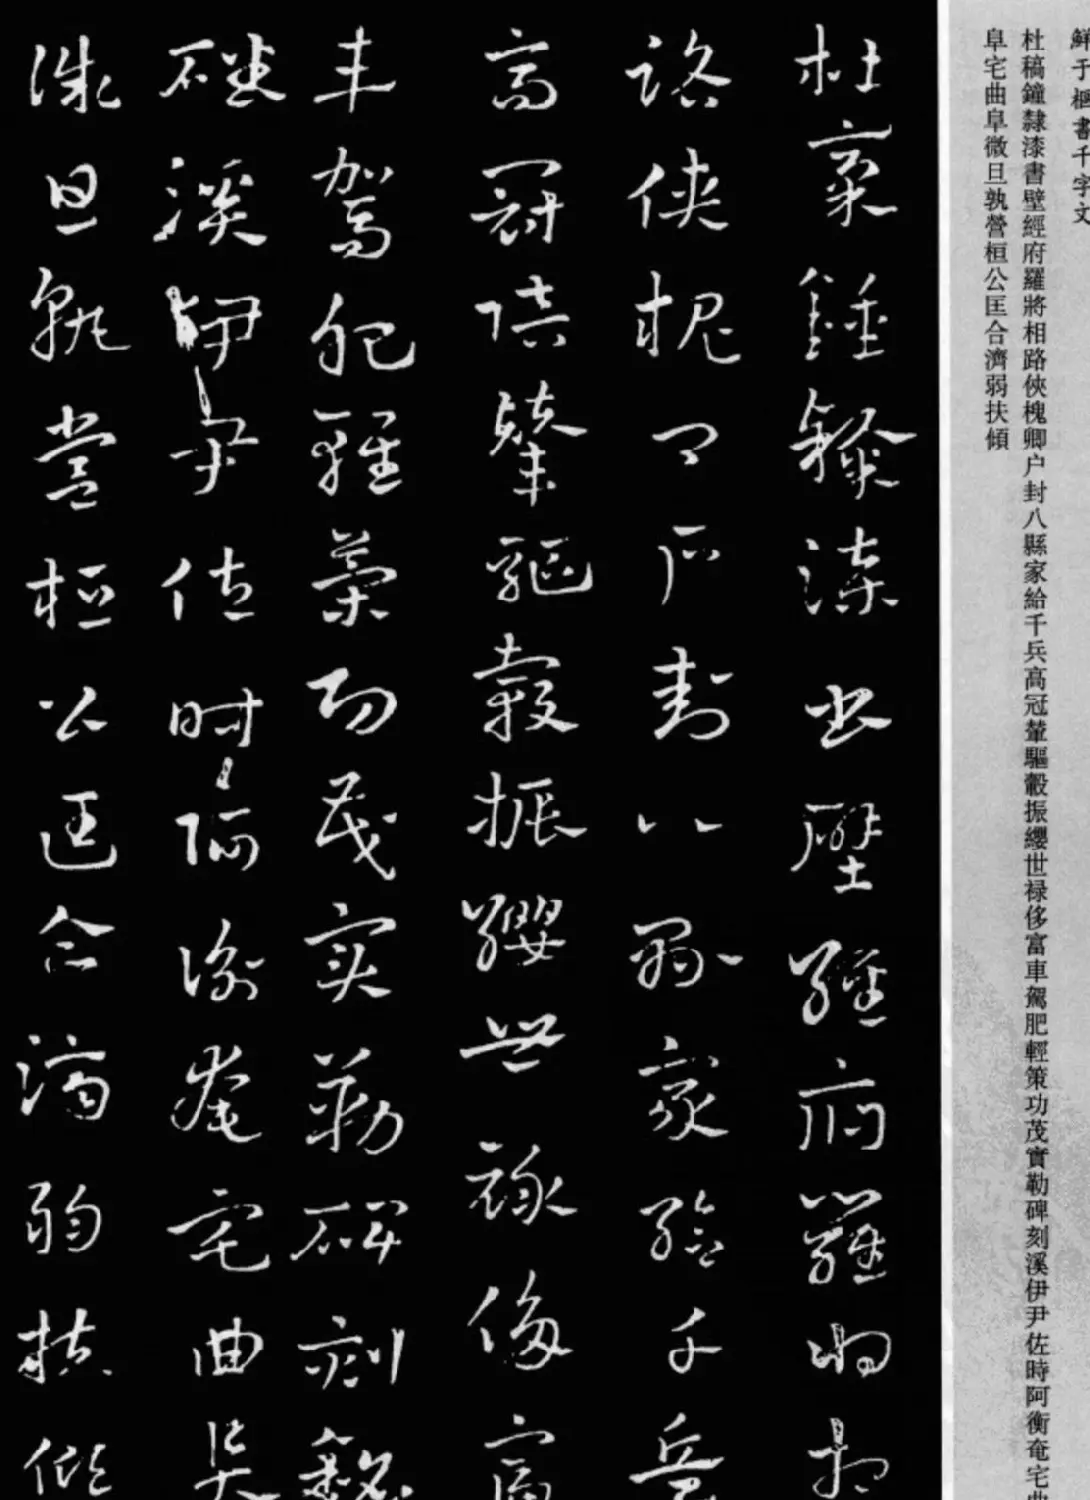 鮮于樞書千字文
杜稿鐘隸漆書壁經府羅將相路俠槐卿户封八縣家給千兵高冠輦驅轂振纓世禄侈富車駕肥輕策功茂實勒碑刻溪伊尹佐時阿衡奄宅曲
阜宅曲阜微旦孰營桓公匡合濟弱扶傾
杜稾鍾隸漆書壁經府羅將相
路俠槐卿户封八縣家給千兵
高冠陪輦驅轂振纓世禄侈富
車駕肥輕策功茂實勒碑刻銘
磻溪伊尹佐時阿衡奄宅曲阜
微旦孰營桓公匡合濟弱扶傾